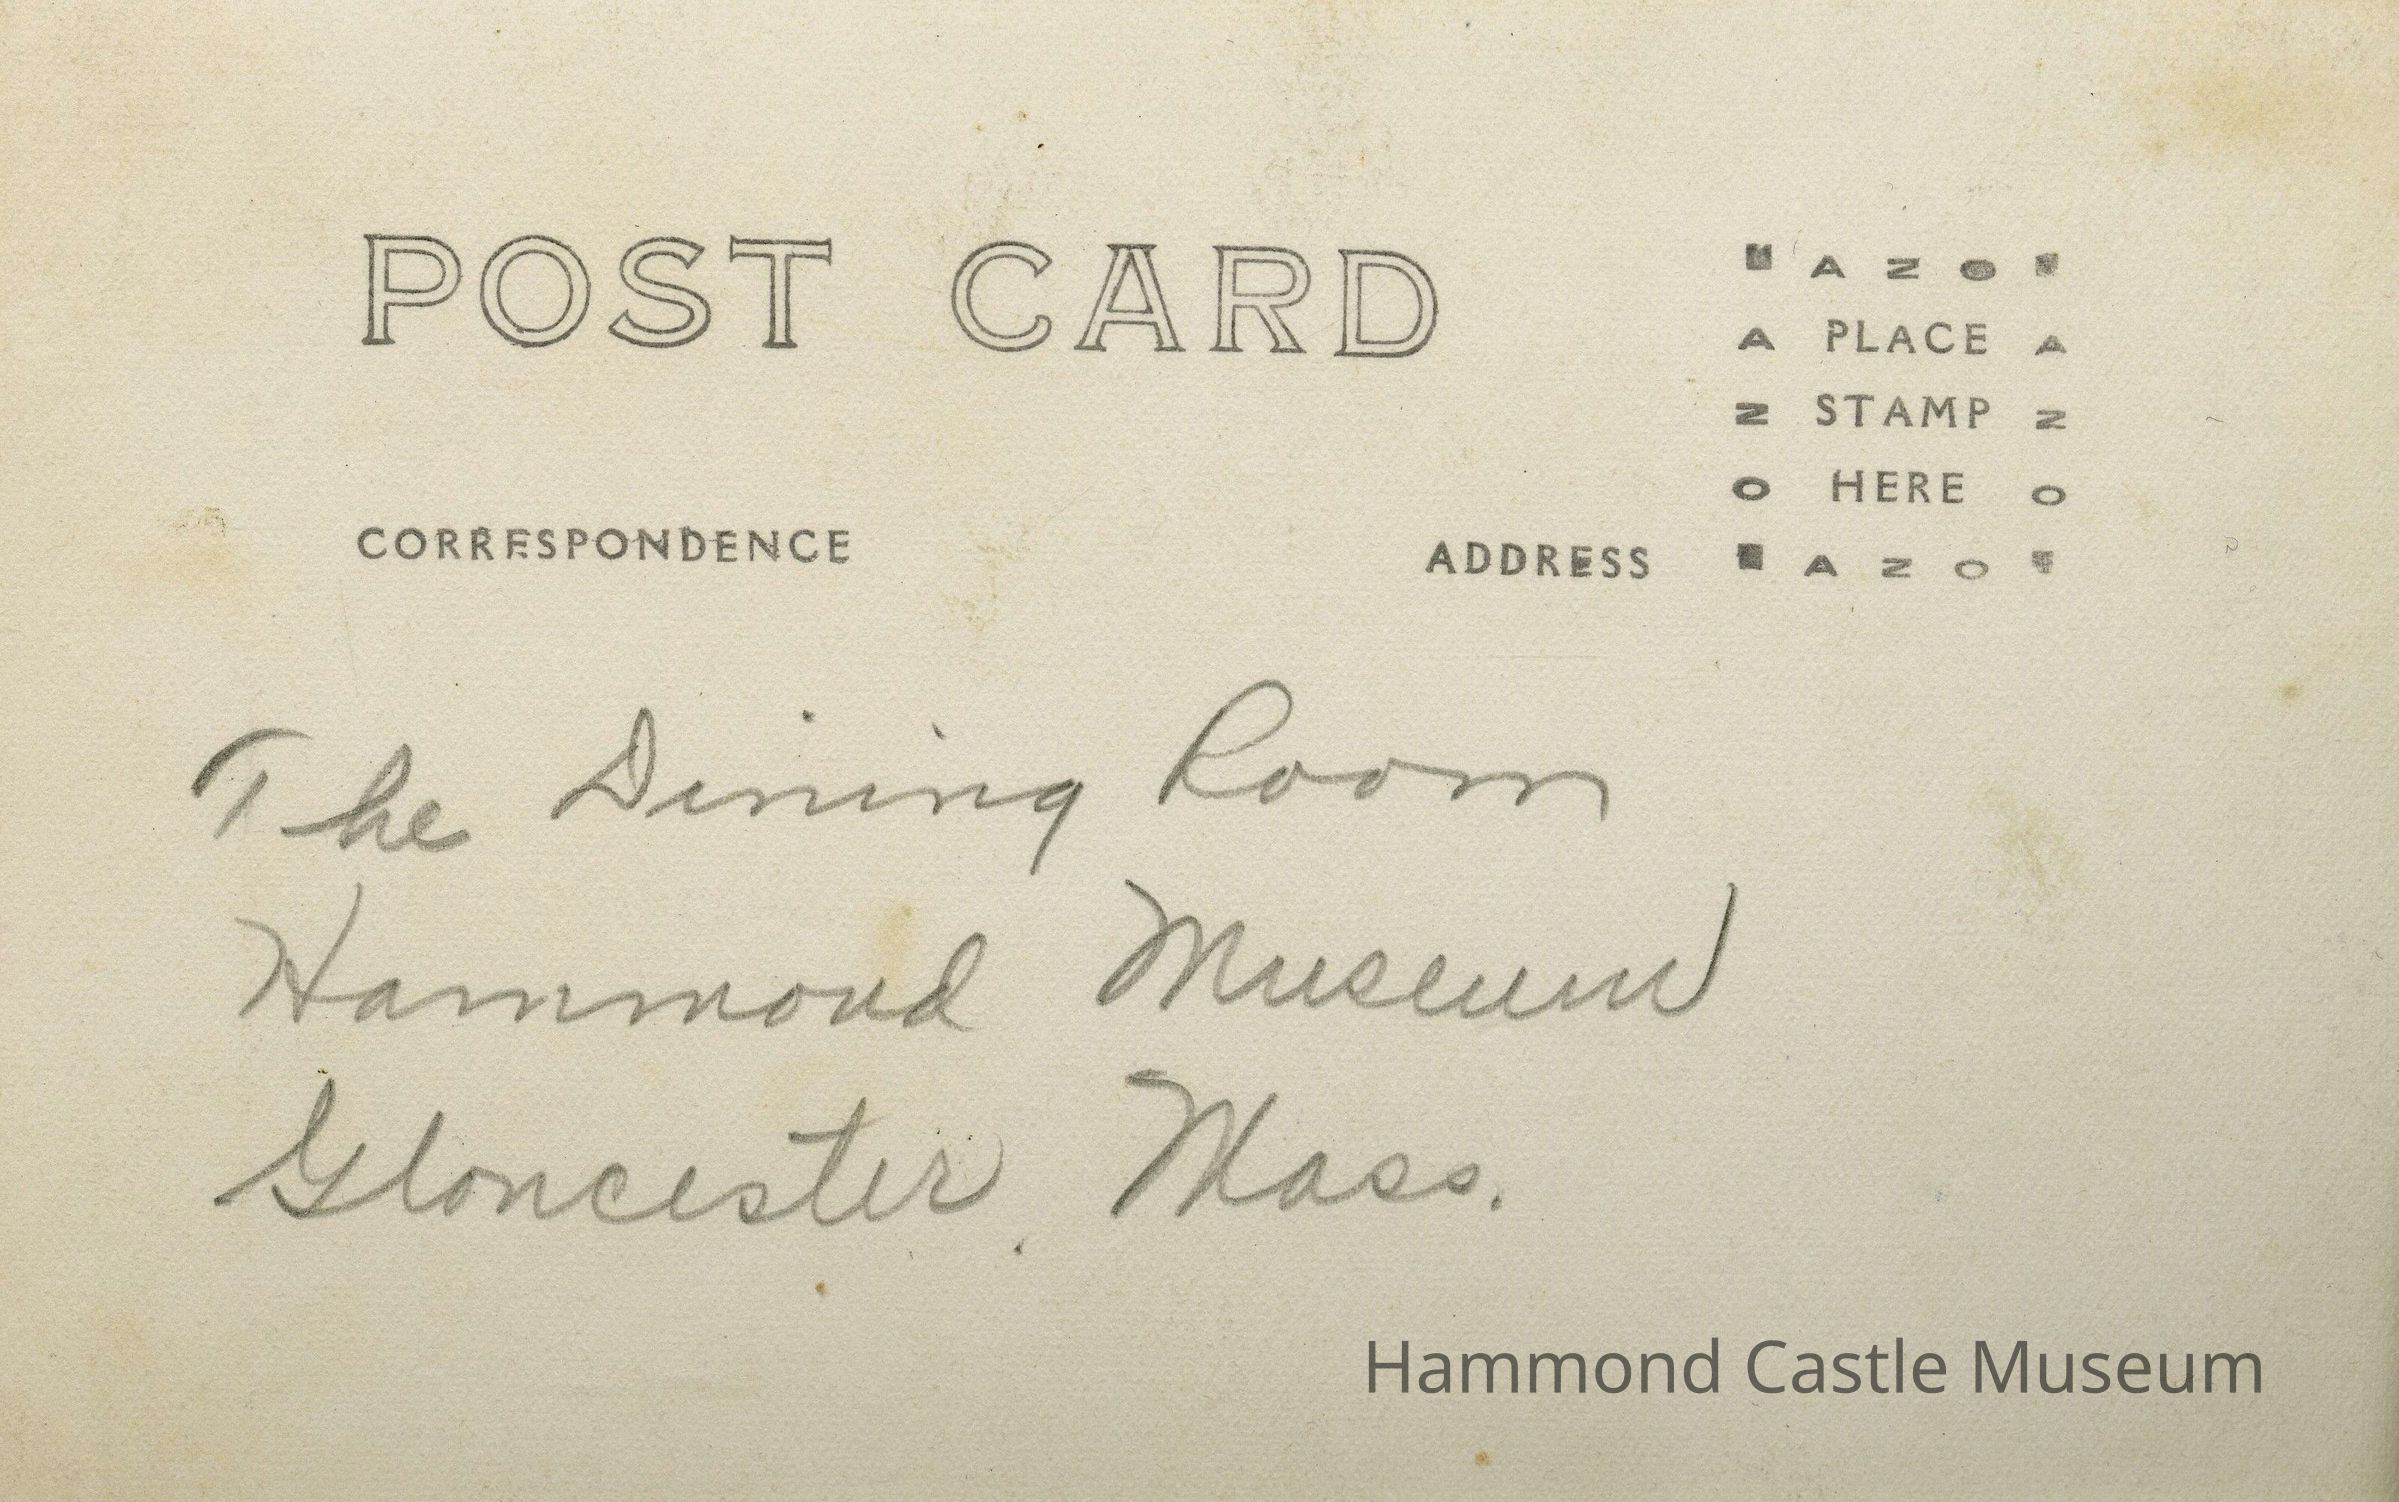 POST CARD
■ A Z O ■
A PLACE A
Z STAMP Z
O HERE O
■ A Z O ■
CORRESPONDENCE
ADDRESS
The Dining Room
Hammond Museum
Gloucester, Mass.
Hammond Castle Museum